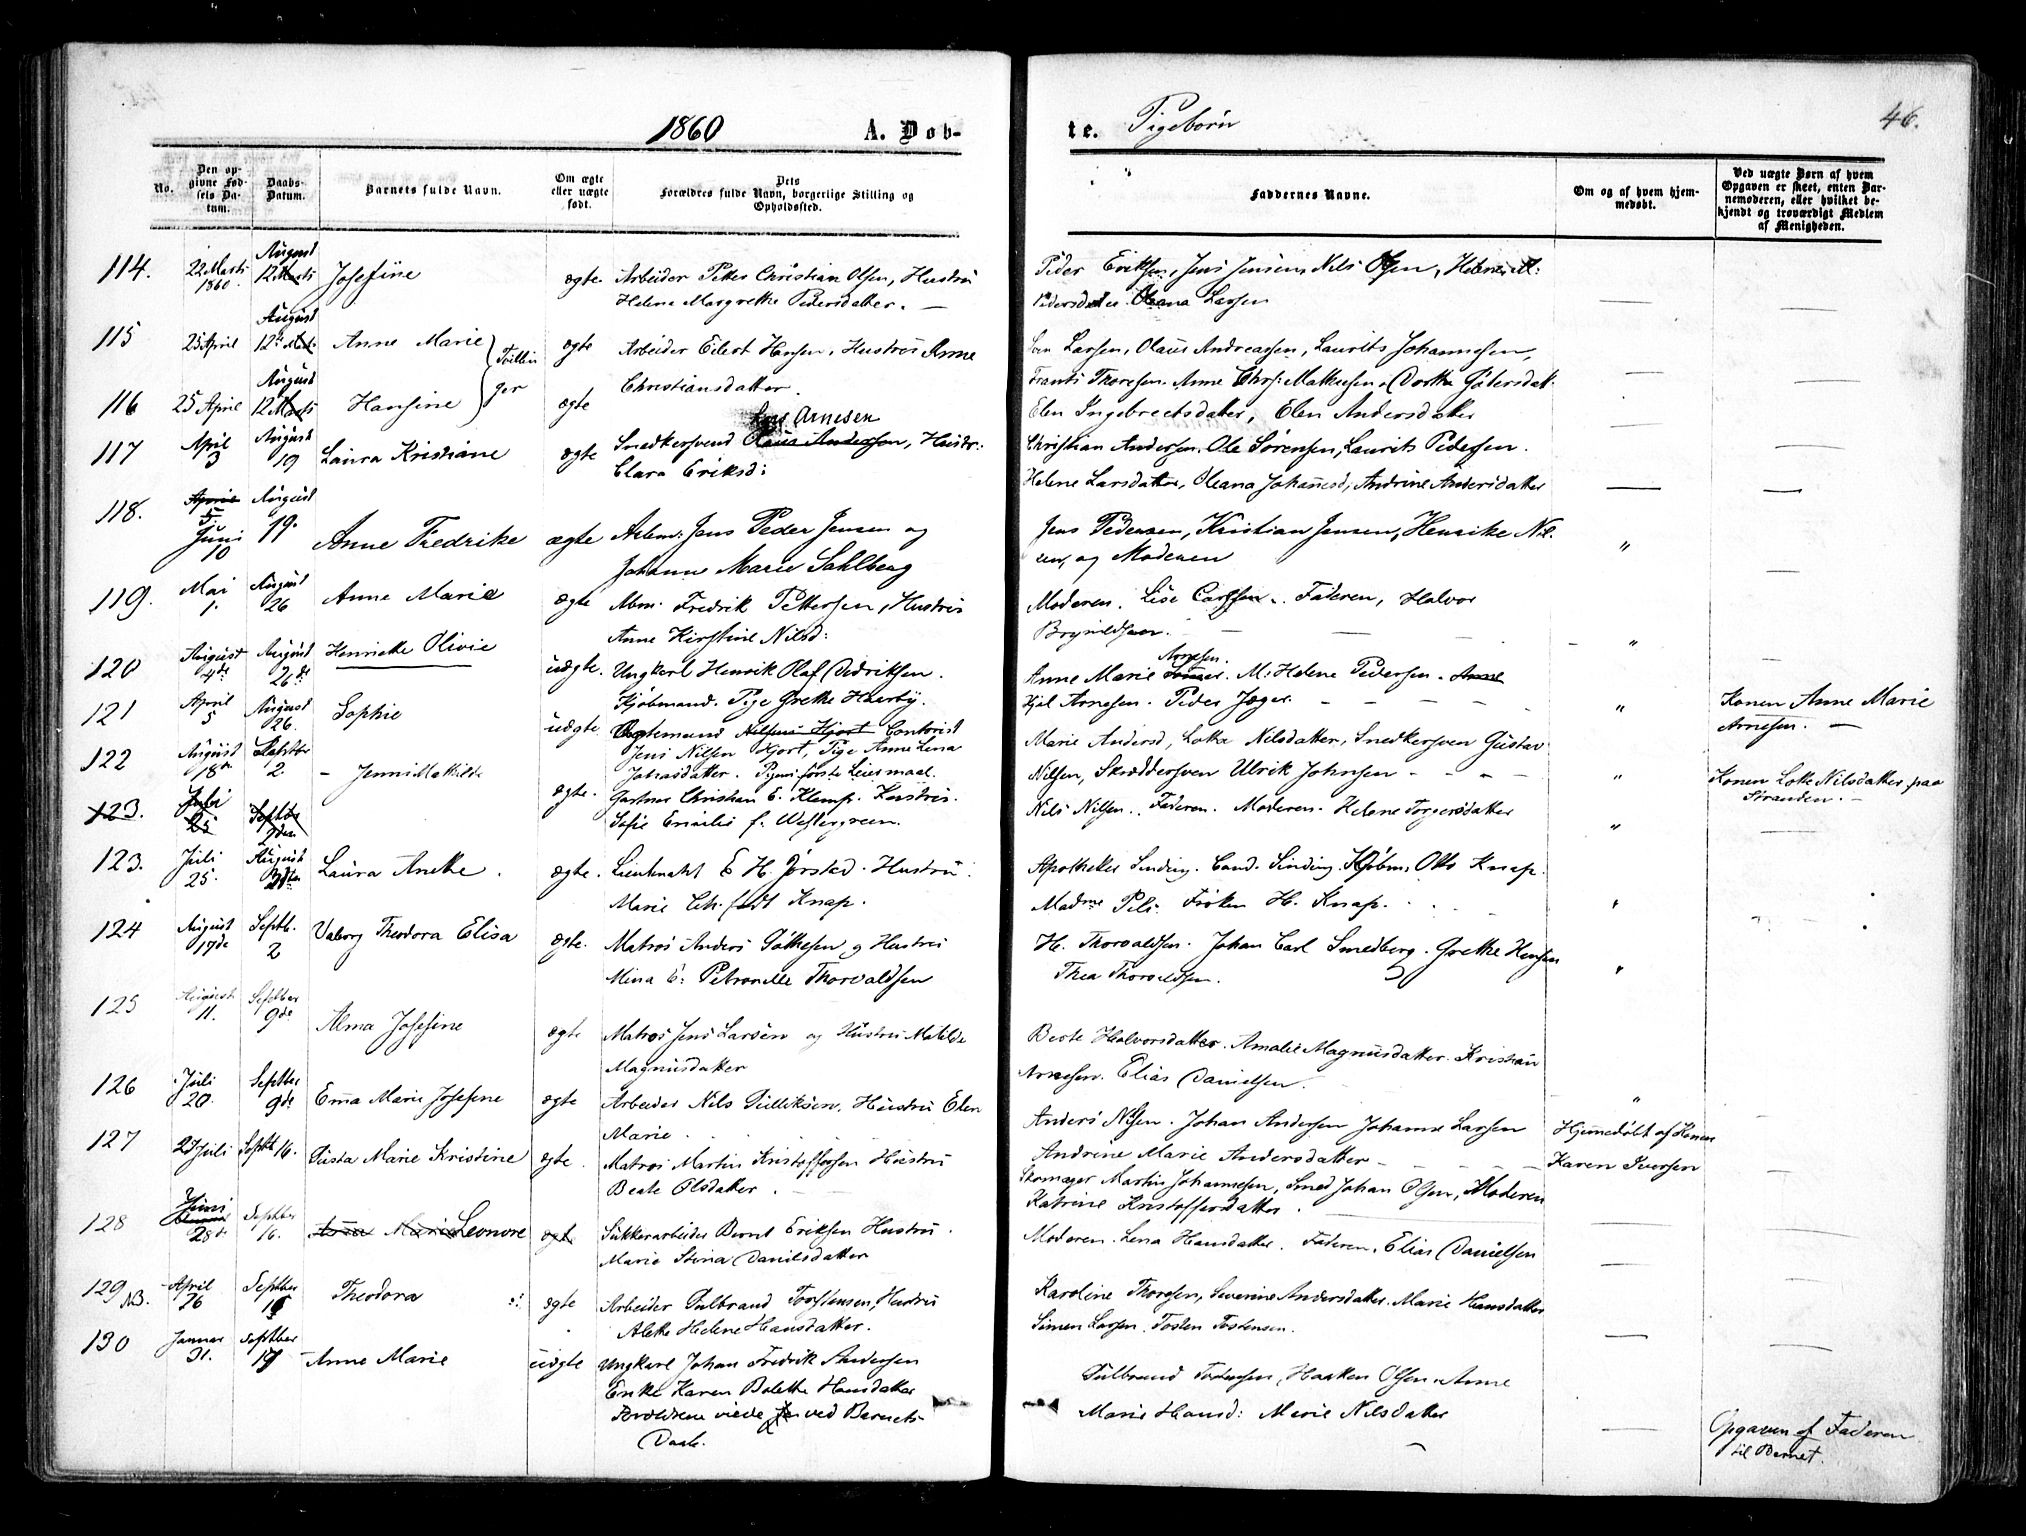 1860 A. Døb-
te. Pigebørn
46.
No.
Den op-
givne Fød-
sels Da-
tum.
Daabs-
Datum.
Barnets fulde Navn.
Om ægte
eller uægte
født.
Dets
Forældres fulde Navn, borgerlige Stilling og
Opholdssted.
Faddernes Navne.
Om og af hvem hjem-
medøbt.
Ved uægte Børn af hvem
Opgaven er skeet, enten Bar-
nemoderen, eller hvilket be-
kjendt og troværdigt Medlem
af Menigheden.
114. 22 Marts 1860 August 12 Marts Josefine ægte Arbeider Petter Christian Olsen, Hustru
Helene Margrethe Pedersdatter. —
Peder Eriksen, Jens Jensen, Nils Olsen, Helene M:
Pedersdatter. Oleana Larsen
115 25 April August 12te Anne Marie ægte Arbeider Eilert Hansen, Hustru Anne
Tvillin
ger
Christiansdatter.
Larsen, Olaus Andreassen, Laurits Johannesen,
Frants Thoresen. Anne Chrs: Mathesen.
116 25 April August 12 Marts Hansine ægte
Elen Ingebrectsdatter, Elen Andersdatter
117 April 3 August 19 Laura Kristiane ægte Arnesen
Snedkersvend Olaus Andersen, Hustr:
Clara Eriksd:
Christian Andersen. Ole Sørensen, Laurits Pedersen.
Helene Larsdatter, Oleana Johannesd; Andrine Andersdatter
118. April 5 Juni 10 August 19. Anne Fredrike ægte Arbm: Jens Peder Jensen og
Johanne Marie Sahlberg
Jens Pedersen, Kristian Jensen, Henrike Nil-
sen, og Moderen
"
119. Mai 1. August 26 Anne Marie ægte Abm: Fredrik Pettersen, Hustru
Anne Kirstine Nilsd:
Moderen. Lise Carlsen. Faderen, Halvor
Bryni­ldsen.
"
120 August 4de August 26de Henriette Olivie uægte. Ungkarl Henrik Olaf Didriksen.
Kjøbmand. Pige Grethe Haarby.
Arnesen.
Anne Marie M: Helene Pedersen. Anne
Arnesen. Peder Jæger.
"
Konen Anne Marie
Arnesen. —
121 April 5 August 26. Sophie uægte Nilsen Hjort Contorist
Jens Nilsen Hjort, Pige Anne Lena
datter. Pigens første Leiermaal.
Marie Andersd, Lotte Nilsdatter, Snedkersven Gustav
Nilsen, Skræddersven Ulrik Johnsen
"
Konen Lotte Nilsdatter paa
Stranden. —
122 August 18de Septbr 2. Jenni Mathilde ægte. Gartner Christian E. Klemp. Hustru.
Sofie Emilie f. Westergreen.
Nils Nilsen. Faderen. Moderen. Helene Torgersdatter
"
123. Juli 25 Septbr 9de
123. Juli 25. August Laura Anette. ægte. Lieutenant E H. Jørstad. Hustru
Marie Cth. født Knap.
Apotheker Sinding. Cand. Sinding. Kjøbm. Otto Knap.
Madme Frøken H. Knap.
124 August 17de Septb. 2 Valborg Theodora Elisa ægte. Matros Anders Gulliksen og Hustru
Mina E: Petronelle Thorvaldsen
H. Thorvaldsen. Johan Carl Smedberg. Grethe Hansen
Thea Thorvaldsen.
125 August 11. Septber 9de Alma Josefine ægte Matros Jens Larsen og Hustru Matilde
Magnusdatter
Berte Halvorsdatter. Amalie Magnusdatter. Kristian
Arnesen. Elias Danielsen.
"
126 Juli 20. Septber 9de Emma Marie Josefine ægte Arbeider Nils Gulliksen, Hustru Elen
Marie.
Anders Nilsen. Johan Andersen Johanne Larsen
Andrine Marie Andersdatter
Hjemmedøbt af Konen
Karen Iversen
127 27 Juli Septbr 16. Gusta Marie Kristine ægte. Matros Martin Kristoffersen Hustru
Beate Olsdatter.
Skomager Martin Johannesen, Smed Johan Olsen, Moderen
Katrine Kristoffersdatter.
128 Juni 28de Septber 16. Anna Marie Leonore ægte Sukkerarbeider Bernt Eriksen Hustru.
Marie Stina Danielsdatter
Moderen. Lena Hansdatter. Faderen. Elias Danielsen
129 NB. April 26 Septber 16 Theodora ægte Arbeider Gulbrand Torstensen, Hustru
Alette Helene Hansdatter.
Karoline Thoresen, Severine Andersdatter. Marie Hansdatter
Simen Larsen. Tosten Tostensen.
130 Januar 31. Septber Anne Marie uægte Ungkarl Johan Fredrik Andersen
Enke Karen Bolette Hansdatter
Forældrene viede ved Barnets
Daab.
Gulbrand Torstensen, Haaken Olsen. Anne
Marie Hansd: Marie Nilsdatter
Opgaven af Faderen
til Barnet.